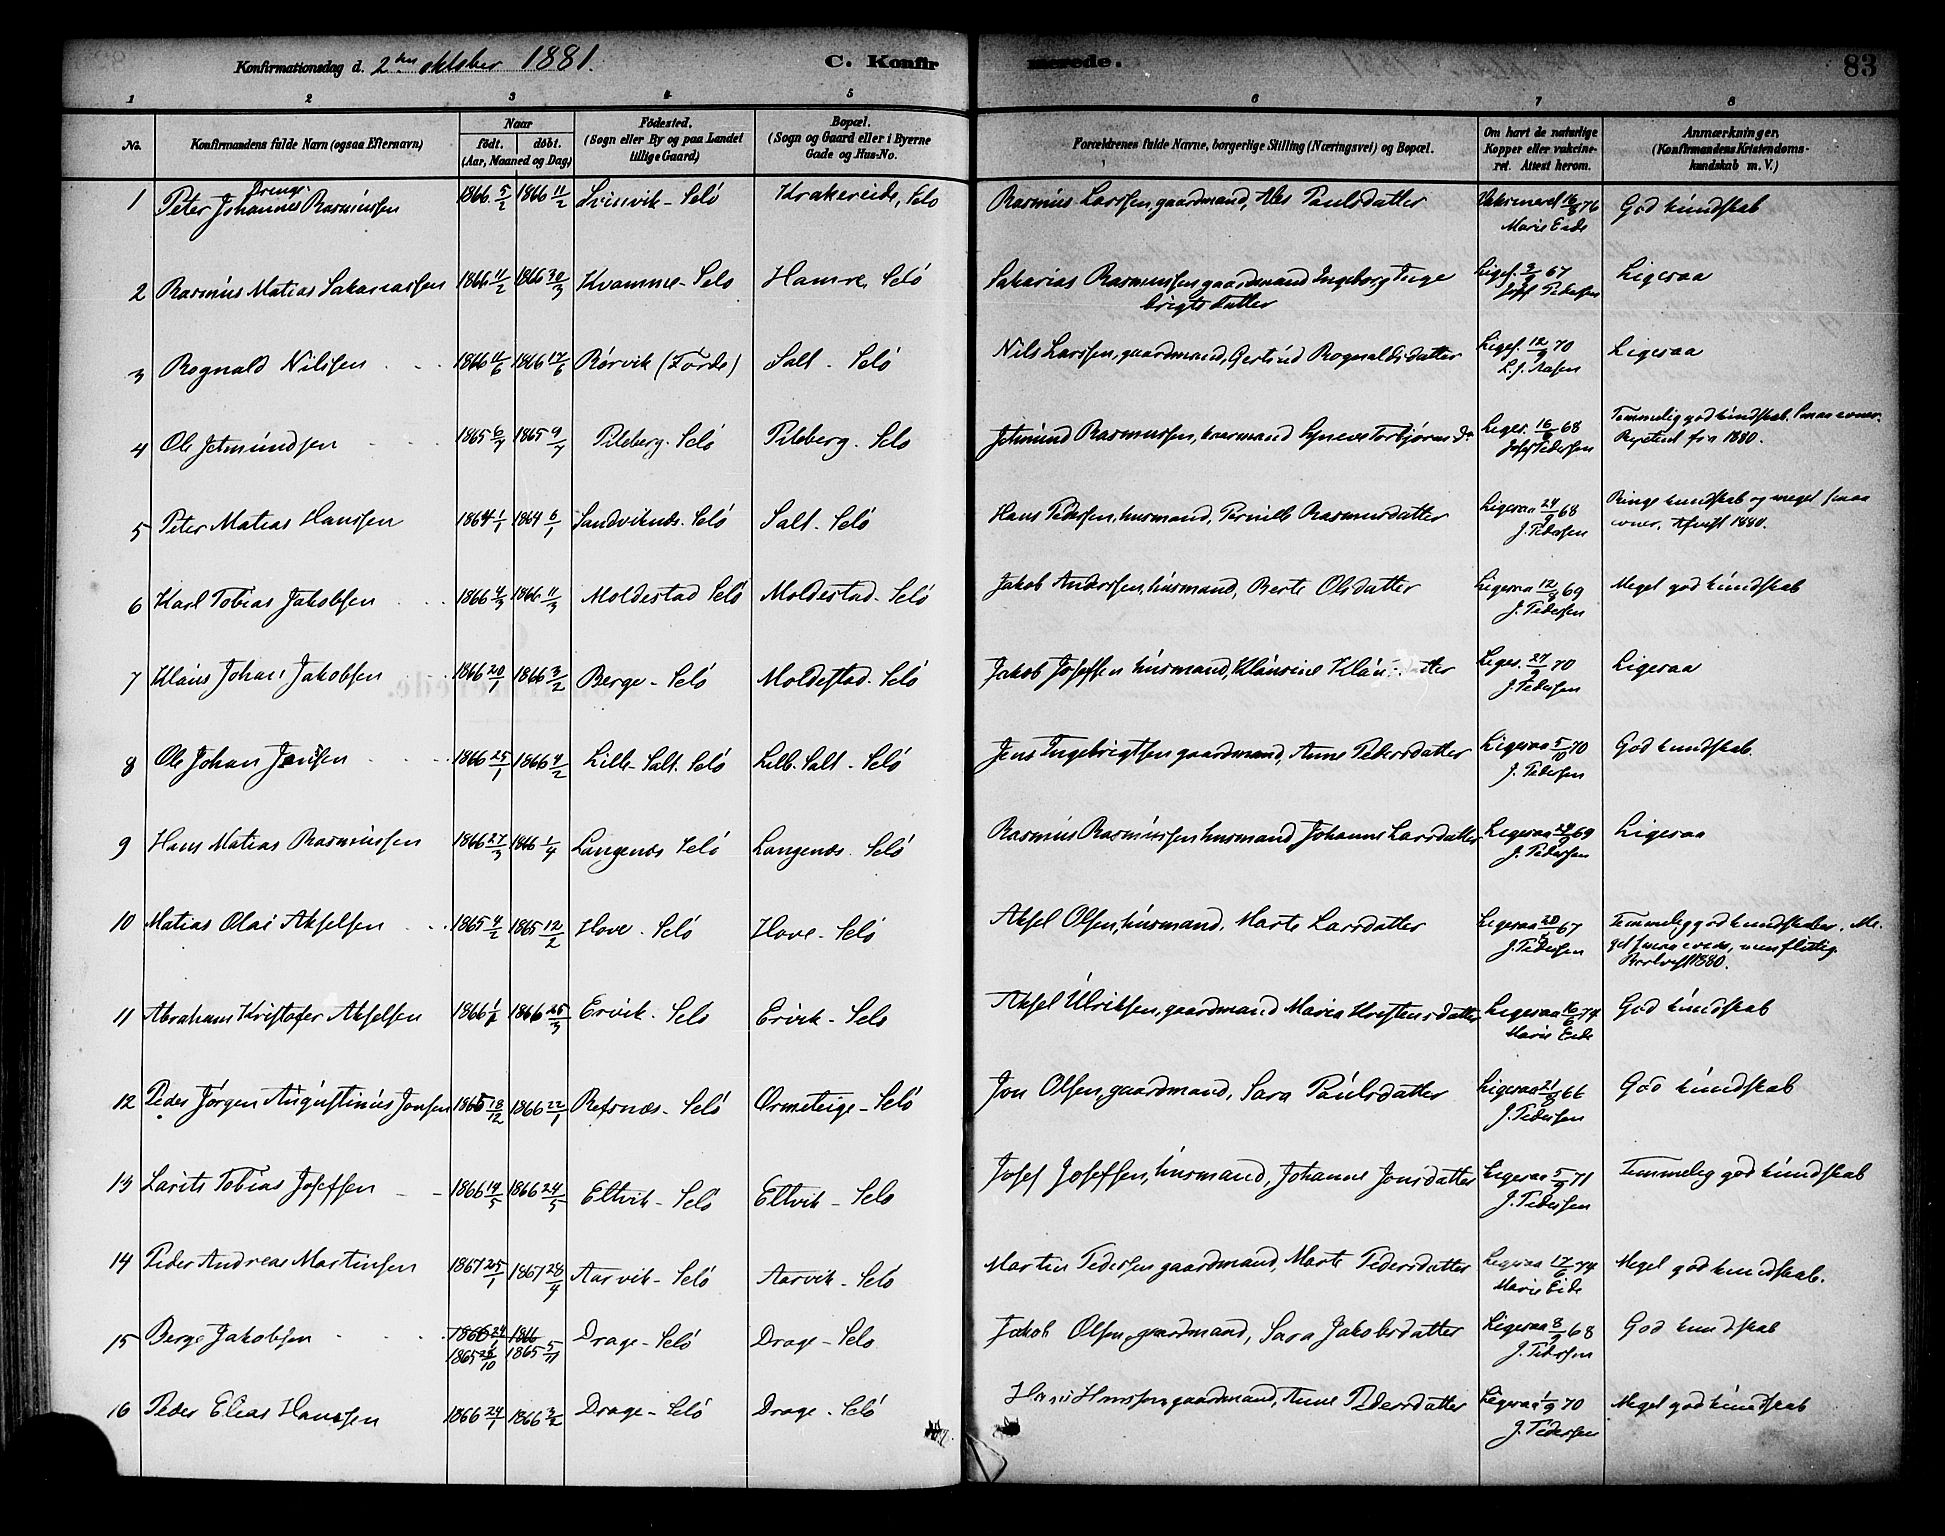 Konfirmationsdag d. 2den oktober 1881.
C. Konfirmerede.
83
1 2 3 4 5 6 7 8
No.
Konfirmandens fulde Navn (ogsaa Efternavn)
Naar
født. døbt.
(Aar, Maaned og Dag)
Fødested.
(Sogn eller By og paa Landet
tillige Gaard)
Bopæl.
(Sogn og Gaard eller i Byerne
Gade og Hus-No.
Forældrenes fulde Navne, borgerlige Stilling (Næringsvei) og Bopæl.
Om havt de naturlige
Kopper eller vakcine-
ret. Attest herom.
Anmærkninger.
(Konfirmandens Kristendoms-
kundskab m. V.)
Drenge.
1 Peter Johannes Rasmussen 1866 5/2 1866 11/2 Krakereide, Selø Rasmus Larssen, gaardmand, Paulsdatter 16/8 76 God kundskab
Marie Eide
2 Rasmus Matias Sakariassen 1866 11/2 1866 30/3 Kvamme - Selø Hamre, Selø Sakarias Rasmussen gaardmand Ingeborg Inge Liges. 67 Ligesaa
brigtsdatter Josef Pedersen
3 Rognald Nilssen 1866 11/6 1866 17/6 Rørvik (Førde) Salt - Selø Nils Larssen, gaardmand, Gertrud Rognaldsdatter Liges. 12/9 70 Ligesaa
L. J. Aasen
4 Ole Jetmundsen 1865 6/7 1865 9/7 Pileberg - Selø Pileberg - Selø Jetmund Rasmussen, Synneve Torbjørnsd. Liges. 16/8 68 Temmelig god kundskab. Smaa evner.
Josef Pedersen fra 1880.
5 Peter Matias Hanssen 1864 1/1 1864 6/1 Sandviknæs. Selø Salt - Selø Hans Pedersen, husmand, Pernille Rasmusdatter Ligesaa 24/9 68 Ringe kundskab og meget smaa
J. Pedersen evner. Afvist 1880.
6 Karl Tobias Jakobsen 1866 4/3 1866 11/3 Moldestad Selø Moldestad - Selø Jakob Anderssen, husmand, Berte Olsdatter Ligesaa 12/9 69 Meget god kundskab
J. Pedersen
7 Klaus Johan Jakobsen 1866 20/1 1866 3/2 Berge - Selø Moldestad - Selø Jakob Josefsen husmand, Klausine Liges. 27/9 70 Ligesaa
J. Pedersen
8 Ole Johan Jensen 1866 25/1 1866 4/2 Lille-Salt. Selø Lille-Salt - Selø Jens Ingebrigtsen gaardmand, Anne Pedersdatter Ligesaa 5/10 70 God kundskab.
J. Pedersen
9 Hans Matias Rasmussen 1866 27/3 1866 1/4 Langenæs Selø Langenæs - Selø Rasmus Rasmussen husmand, Johanne Larsdatter Ligesaa 24/9 69 Ligesaa
J. Pedersen
10 Matias Olai Akselsen 1865 4/2 1865 12/2 Hove - Selø Hove - Selø Aksel Olsen, husmand, Marte Larsdatter Ligesaa 67 Temmelig god kundskaber. Me-
J. Pedersen get smaa evner, men flittig.
1880.
11 Abraham Kristofer Akselsen 1866 1866 25/3 Ervik - Selø Ervik - Selø Aksel Ulriksen, gaardmand Maria Kristensdatter Ligesaa 16/6 74 God kundskab
Marie Eide
12 Peder Jørgen Augustinus Jonsen 1865 18/12 1866 22/1 Refsnæs - Selø Ormeteige - Selø Jon Olsen, gaardmand, Sara Paulsdatter Ligesaa 66 God kundskab
J. Pedersen
13 Laurits Tobias Josefsen 1866 19/5 1866 24/5 Eltvik - Selø Eltvik - Selø Josef Josefsen, husmand, Johanne Jonsdatter Ligesaa 5/9 71 Temmelig god kundskab
J. Pedersen
14 Peder Andreas Martinsen 1867 25/1 1867 28/4 Aarvik - Selø Aarvik - Selø Martin Pedersen gaardmand, Marte Pedersdatter Ligesaa 17/6 74 Meget god kundskab.
Marie Eide
15 Berge Jakobsen 1866 24/1 1866 Drage - Selø Drage - Selø Jakob Olsen, gaardmand, Sara Jakobsdatter Ligesaa 68 God kundskab
1865 /10 1865 5/11 J. Pedersen
16 Peder Elias Hanssen 1866 24/1 1866 3/2 Drage - Selø Drage - Selø Hans Hanssen gaardmand, Anne Pedersdatter Ligesaa 1/9 70 Meget god kundskab
J. Pedersen